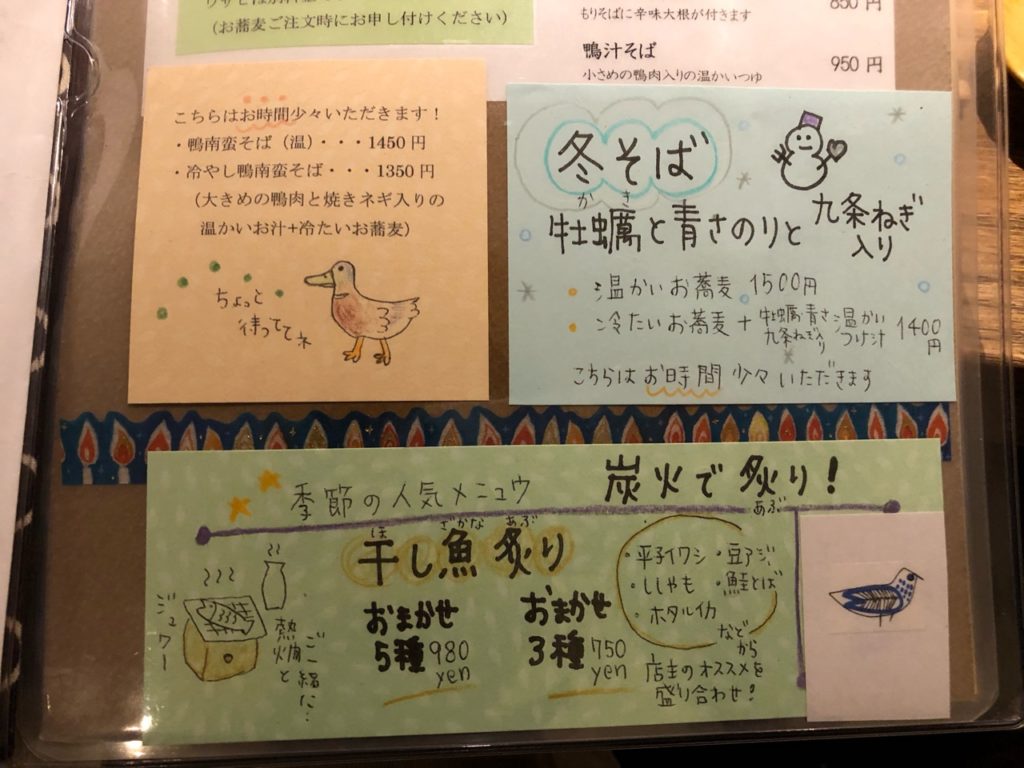 (お蕎麦ご注文時にお申し付けください)
もりそばに辛味大根が付きます
850 円
鴨汁そば
950 円
小さめの鴨肉入りの温かいつゆ
こちらはお時間少々いただきます!
・鴨南蛮そば(温)・・・1450 円
・冷やし鴨南蛮そば・・・1350 円
(大きめの鴨肉と焼きネギ入りの
温かいお汁+冷たいお蕎麦)
ちょっと
待っててネ
冬そば
かき
牡蠣と青さのりと
九条ねぎ
入り
・温かいお蕎麦 1500円
・冷たいお蕎麦+牡蠣青さ
九条ねぎ入り
温かい
つけ汁
1400
円
こちらはお時間少々いただきます
季節の人気メニュウ
炭火で炙り!
あぶ
ほ ざかな あぶ
干し魚炙り
おまかせ
5種980
yen
おまかせ
3種750
yen
・平子イワシ・豆アジ
・ししゃも・鮭とば
・ホタルイカ
などから
店主のオススメを
盛り合わせ!
ジュワー
熱燗と
ご一緒に…